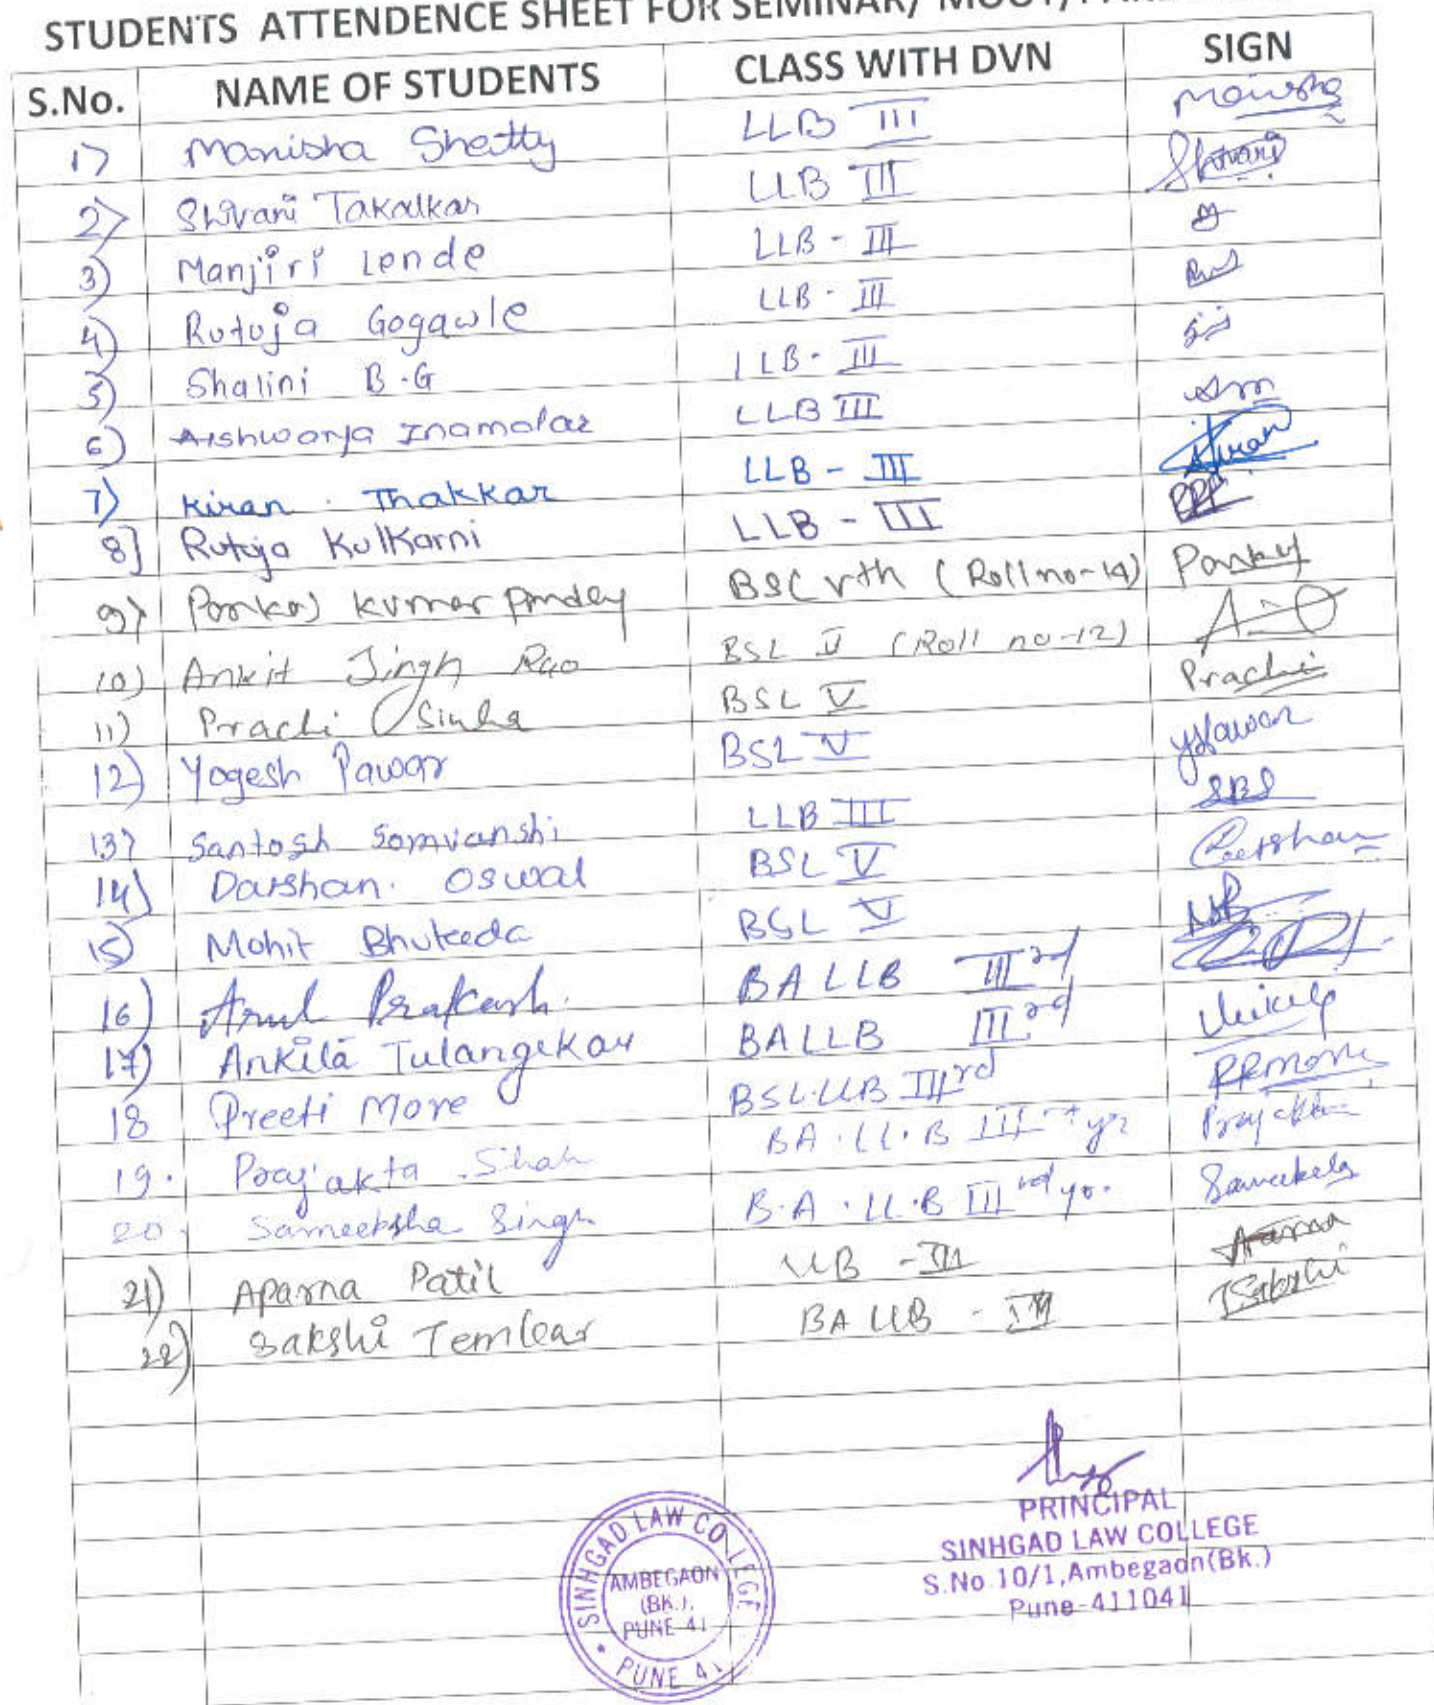 STUDENTS ATTENDENCE SHEET FOR SEMINAR/ MOOT/
S.No. NAME OF STUDENTS CLASS WITH DVN SIGN
1) Manisha Shetty LLB III Manisha
2) Shivani Takalkar LLB III Shivani
3) Manjiri Lende LLB - III
4) Rutuja Gogawle LLB - III
5) Shalini B.G LLB - III
6) Aishwarya Inamdar LLB III
7) Kiran . Thakkar LLB - III Kiran
8] Rutuja Kulkarni LLB - III RRK
9) Pankaj Kumar Pandey BSL vth (Roll no-14) Pankaj
10) Ankit Singh Rao BSL V (Roll no-12)
11) Prachi Sinha BSL V Prachi
12) Yogesh Pawar BSL V YPawar
13) Santosh Somvanshi LLB III SBS
14) Darshan. Oswal BSL V Darshan
15) Mohit Bhuteda BSL V
16) Amul Prakash. BALLB IIIrd
17) Ankita Tulangekar BALLB IIIrd
18 Preeti More BSL.LLB IIIrd PRmore
19. Prajakta Shah BA.LL.B III yr Prajakta
20. Sameeksha Singh B.A.LL.B IIIrd yr. Sameeksha
21) Aparna Patil LLB - III Aparna
22) Sakshi Temkar BALLB - III TSakshi
PRINCIPAL
SINHGAD LAW COLLEGE
S.No.10/1,Ambegaon(Bk.)
Pune-411041
SINHGAD LAW COLLEGE
AMBEGAON
(BK.),
PUNE 41
PUNE 41